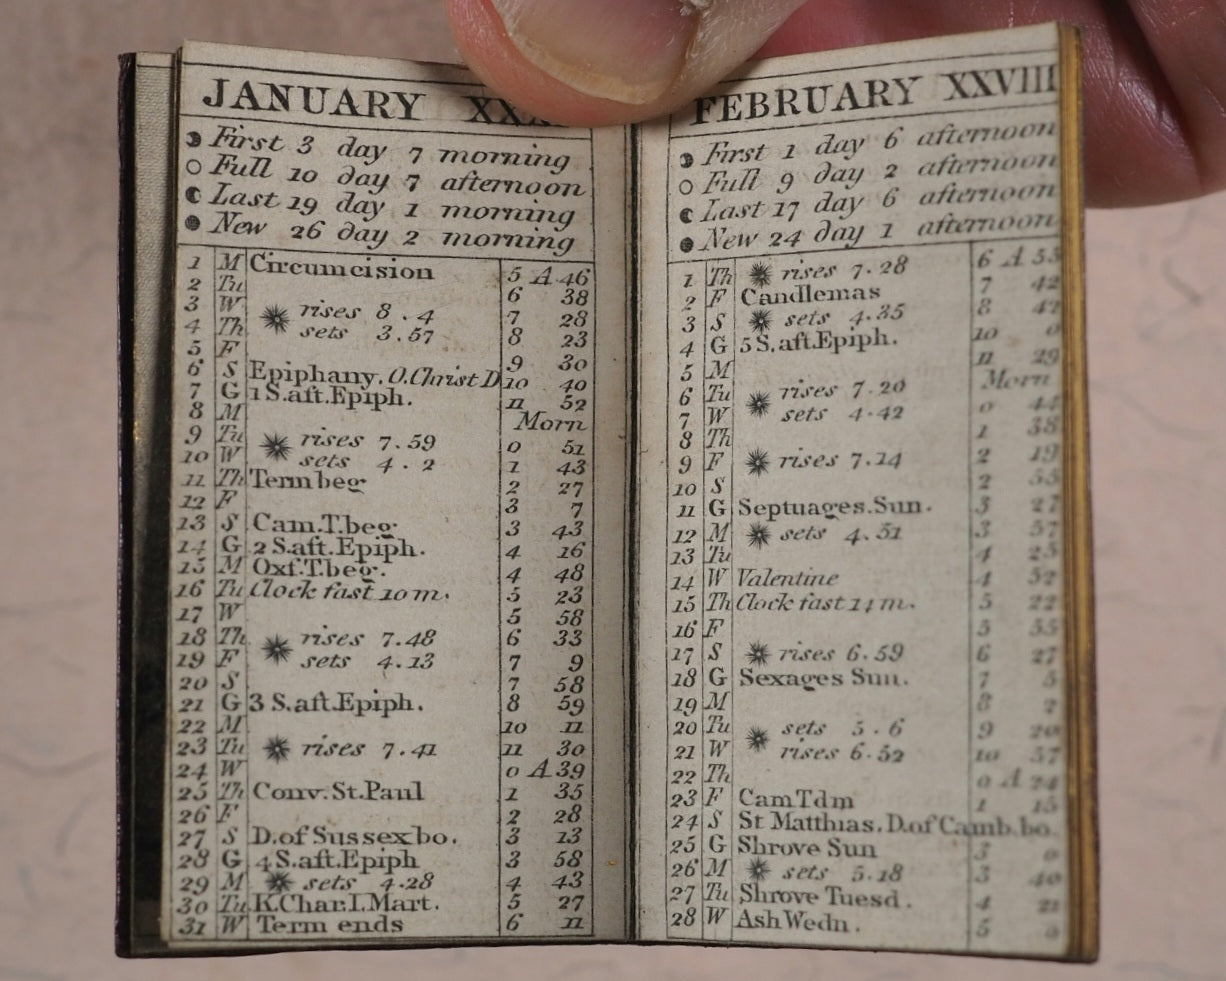 JANUARY XXX
First 3 day 7 morning
Full 10 day 7 afternoon
Last 19 day 1 morning
New 26 day 2 morning
1 M Circumcision 5 A 46
2 Tu 6 38
3 W rises 8.4 7 28
4 Th sets 3.57 8 23
5 F 9 30
6 S Epiphany. O. Christ D 10 40
7 G 1 S. aft. Epiph. 11 52
8 M Morn
9 Tu rises 7.59 0 51
10 W sets 4.2 1 43
11 Th Term beg 2 27
12 F 3 7
13 S Cam. T. beg. 3 43
14 G 2 S. aft. Epiph. 4 16
15 M Oxf. T. beg. 4 48
16 Tu Clock fast 10 m. 5 23
17 W 5 58
18 Th rises 7.48 6 33
19 F sets 4.13 7 9
20 S 7 58
21 G 3 S. aft. Epiph. 8 59
22 M 10 11
23 Tu rises 7.41 11 30
24 W 0 A 39
25 Th Conv. St. Paul 1 35
26 F 2 28
27 S D. of Sussex bo. 3 13
28 G 4 S. aft. Epiph 3 58
29 M sets 4.28 4 43
30 Tu K. Char. I. Mart. 5 27
31 W Term ends 6 11
FEBRUARY XXVIII
First 1 day 6 afternoon
Full 9 day 2 afternoon
Last 17 day 6 afternoon
New 24 day 1 afternoon
1 Th rises 7.28 6 A 55
2 F Candlemas 7 42
3 S sets 4.35 8 47
4 G 5 S. aft. Epiph. 10 0
5 M 11 29
6 Tu rises 7.20 Morn
7 W sets 4.42 0 44
8 Th 1 38
9 F rises 7.14 2 19
10 S 2 55
11 G Septuages. Sun. 3 27
12 M sets 4.51 3 57
13 Tu 4 25
14 W Valentine 4 52
15 Th Clock fast 14 m. 5 22
16 F 5 55
17 S rises 6.59 6 27
18 G Sexages Sun. 7 5
19 M 8 2
20 Tu sets 5.6 9 20
21 W rises 6.52 10 57
22 Th 0 A 24
23 F Cam T d m 1 15
24 S St Matthias. D. of Camb. bo.
25 G Shrove Sun 3 0
26 M sets 5.18 3 40
27 Tu Shrove Tuesd. 4 21
28 W Ash Wedn. 5 0